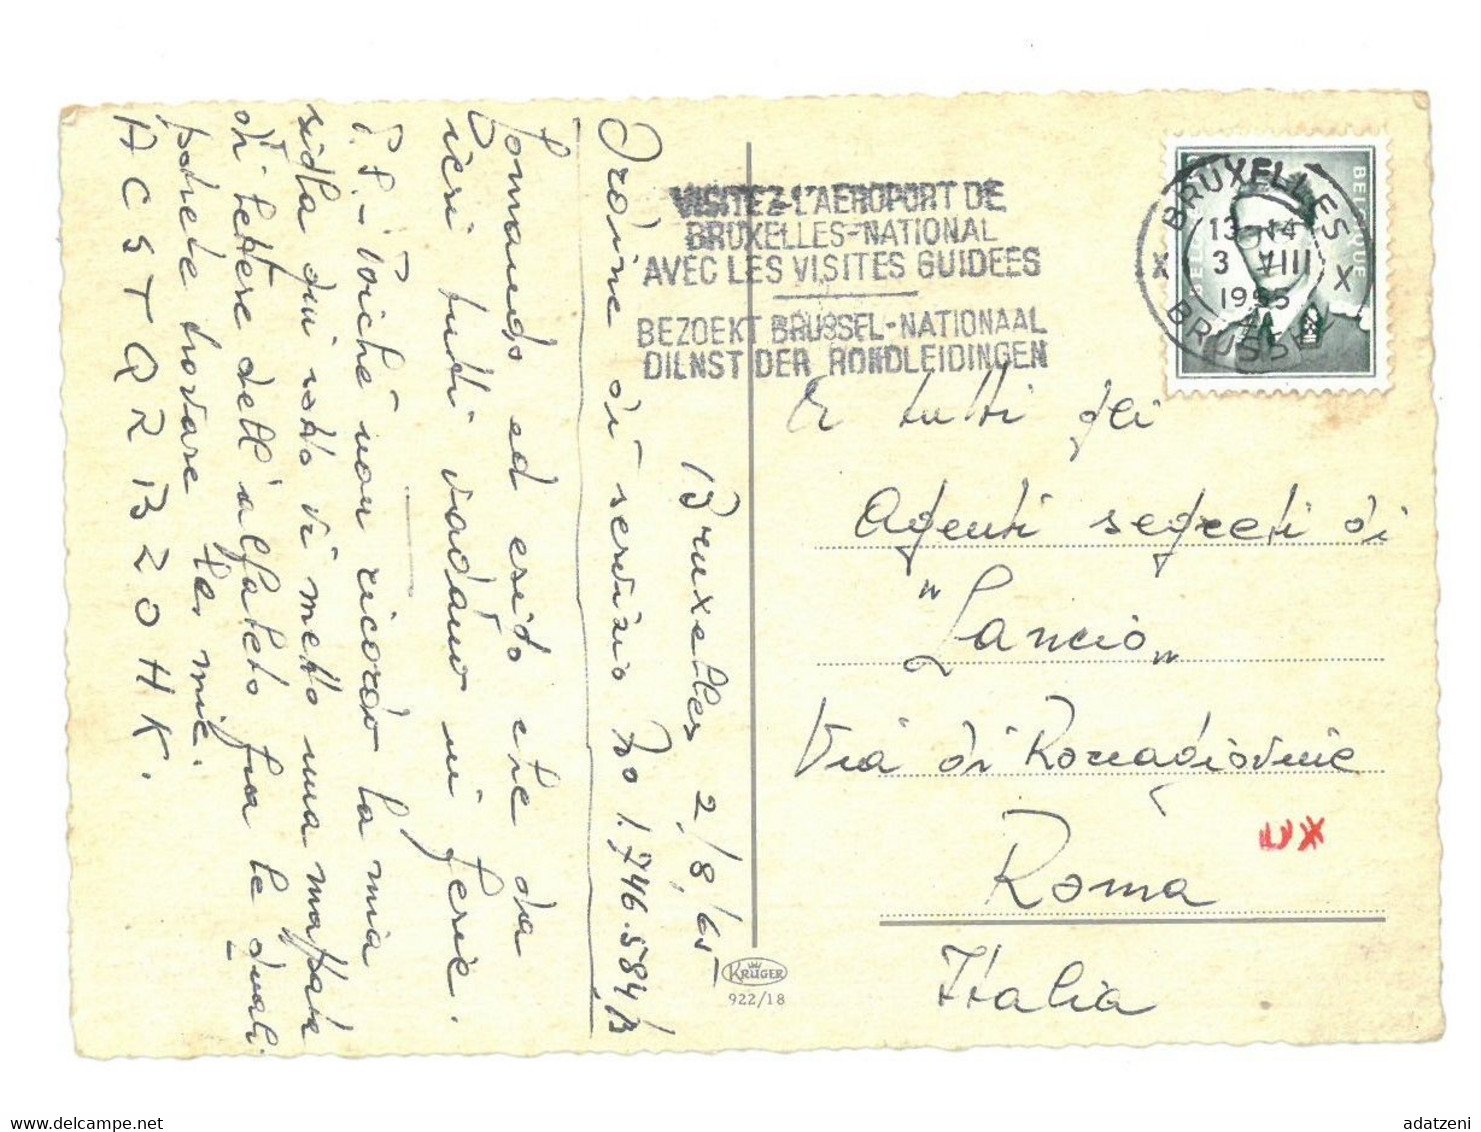 Bruxelles 2/8/65
Ordine di servizio No 1.746.584/B
Comando ed esigo che da
ieri tutti vadano in ferie.
P.S. - Poiché non ricordo la mia
sigla qui sotto vi metto una
di lettere dell'alfabeto fra le quali
potrete trovare le mie.
A C S T Q R B Z O H K.
VISITEZ L'AEROPORT DE
BRUXELLES-NATIONAL
AVEC LES VISITES GUIDEES
BEZOEKT BRUSSEL-NATIONAAL
DIENST DER RONDLEIDINGEN
BRUXELLES
13-14
3 VIII
1965
X X
BRUSSEL
BELGIQUE
A tutti gli
Agenti segreti di
"Lancio"
Via di
Roma
Italia
KRÜGER
922/18
www.delcampe.net
adatzeni